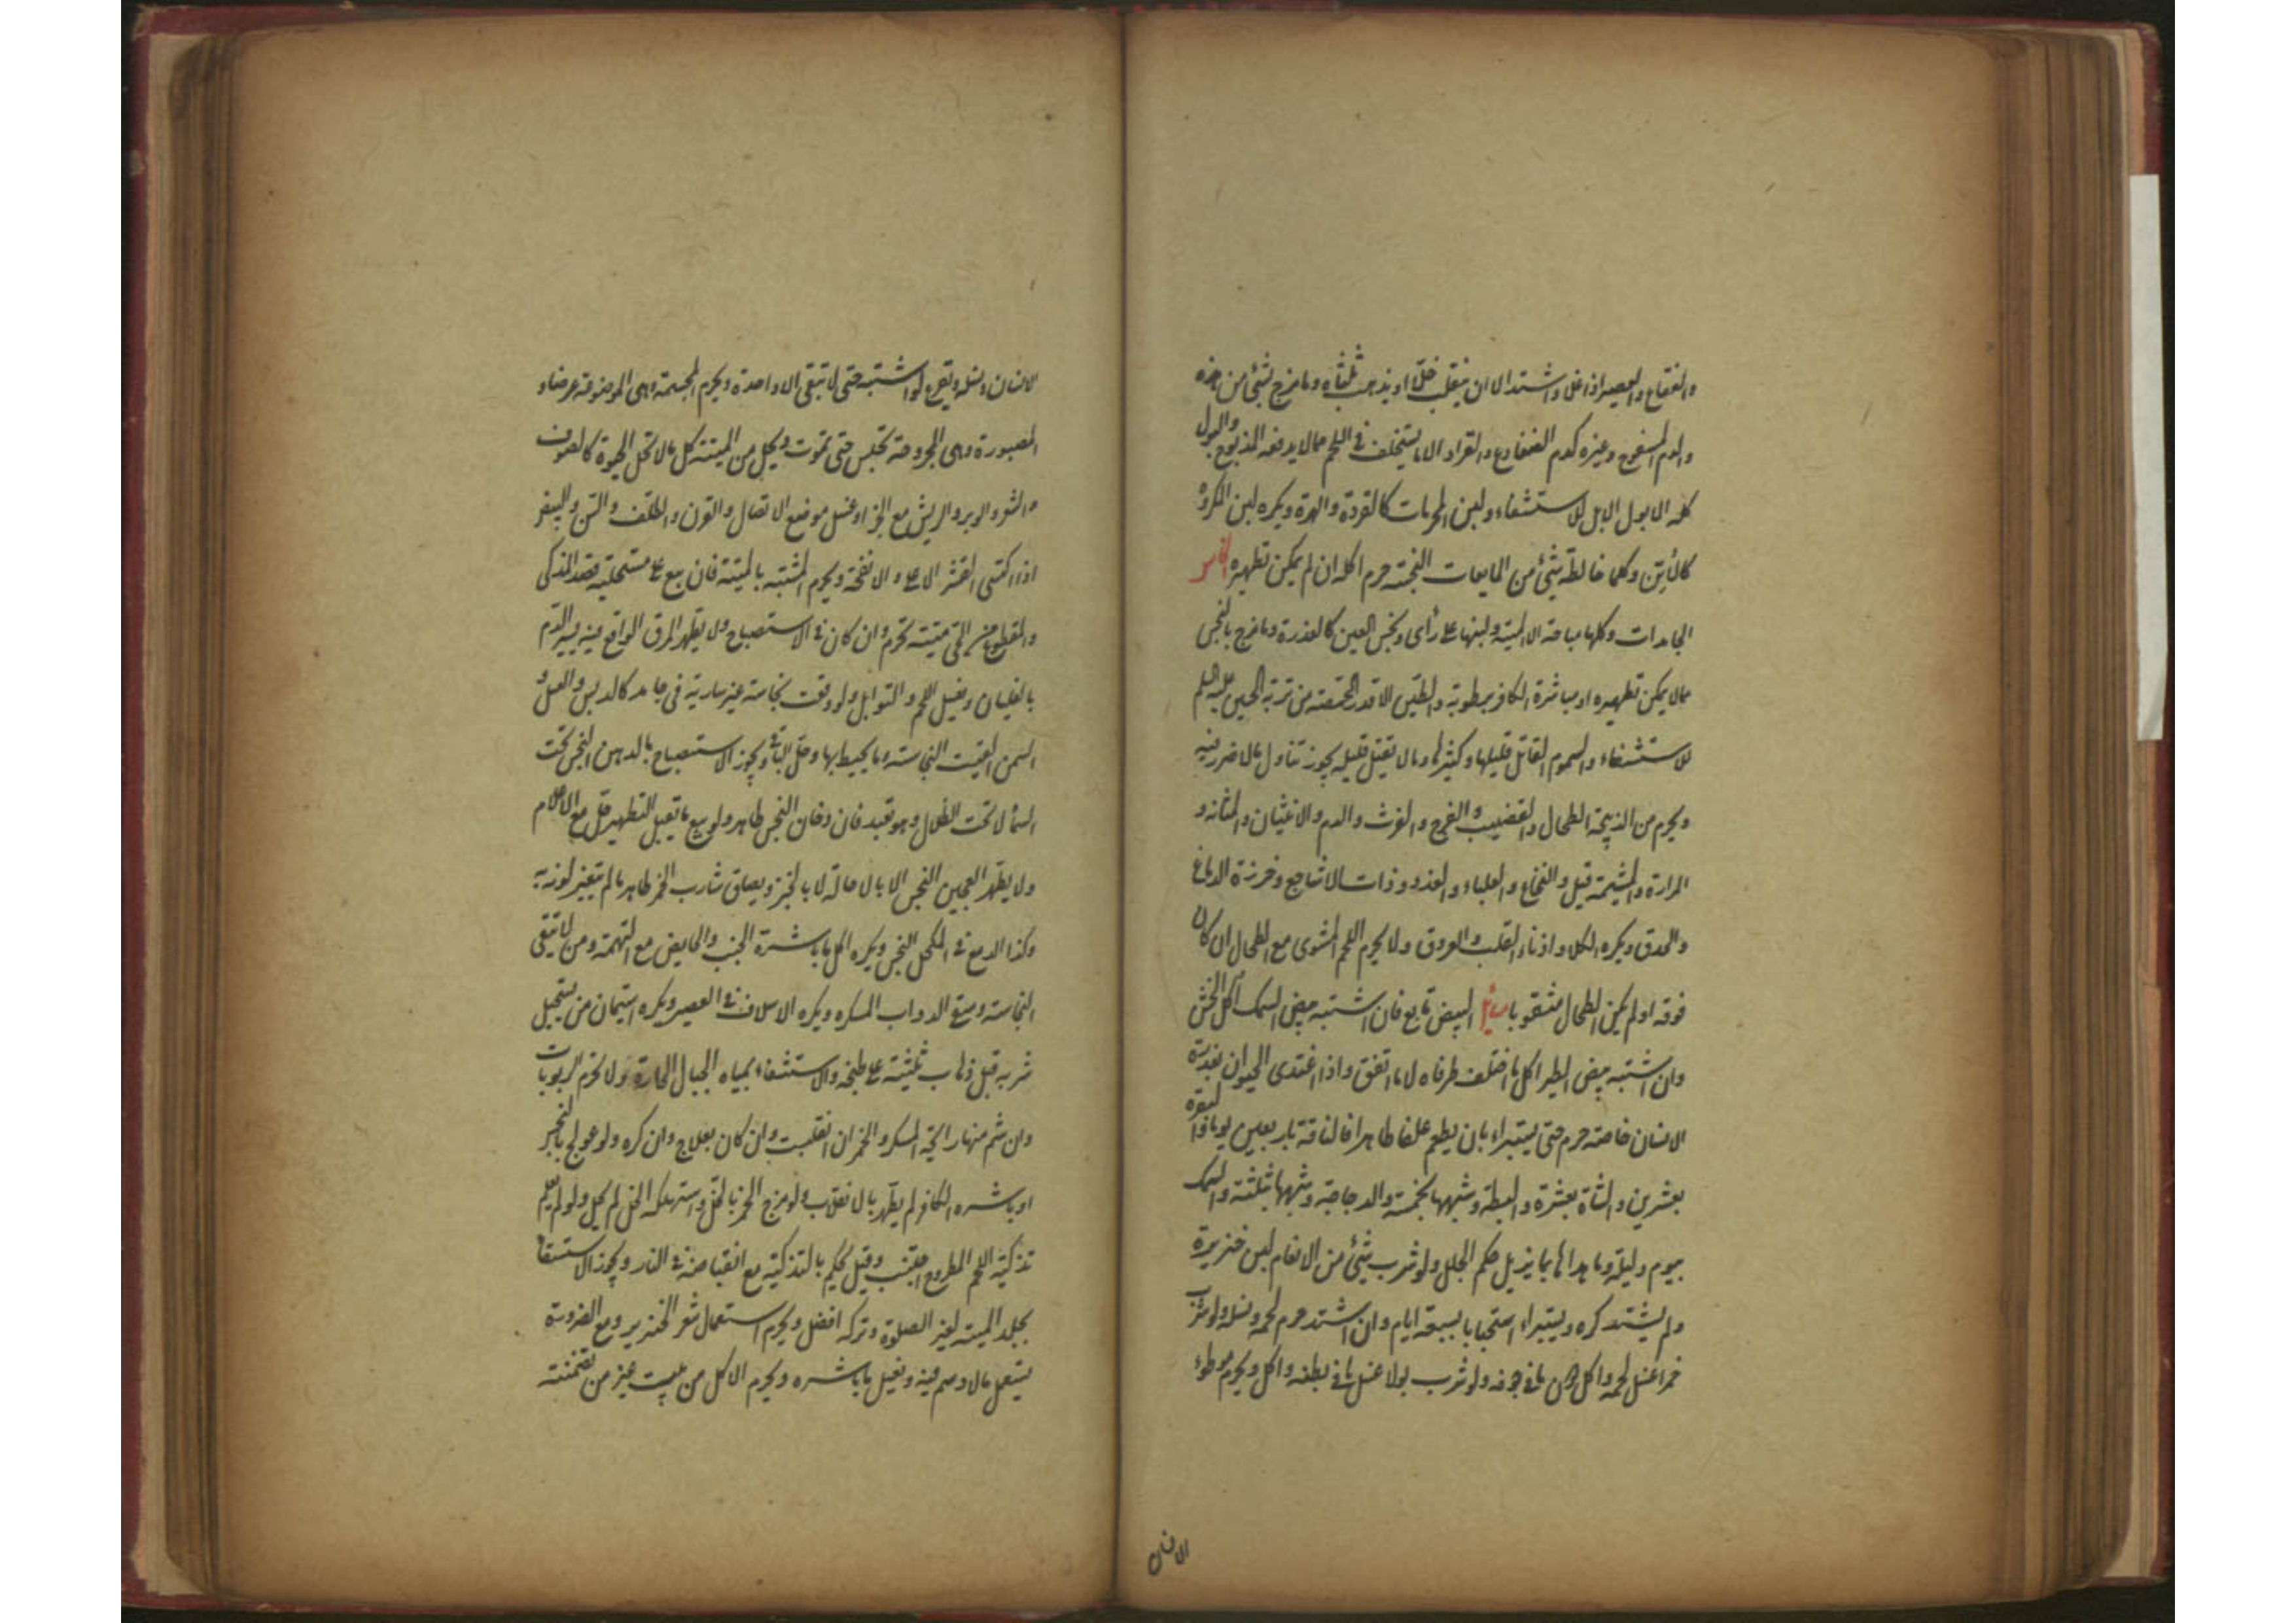 والفقاع والعصير اذا غلا واشتد الا ان ينقلب خلّا او يذهب ثلثاه وما مزج بشئ من هذه
والدم المسفوح وغيره كدم الضفادع والقراد الا ما يستخلف في اللحم مما لا يدفعه المذبوح والبول
كله الا بول الابل للاستشفاء ولبن المحرمات كالقردة والهرة ويكره لبن المكروه
كالاتن وكلما خالطه شئ من المايعات النجسة حرم اكله ان لم يمكن تطهيره الخامس
الجامدات وكلها مباحة الا الميتة ولبنها على رأى ونجس العين كالعذرة وما مزج بالنجس
مما لا يمكن تطهيره او مباشرة الكافر برطوبة والطين الا قدر الحمصة من تربة الحسين عليه السلم
للاستشفاء والسموم القاتل قليلها وكثيرها وما لا يقتل قليله يجوز تناول ما لا ضرر فيه
ويحرم من الذبيحة الطحال والقضيب والفرج والفرث والدم والانثيان والمثانة و
المرارة والمشيمة قيل والنخاع والعلباء والغدد وذات الاشاجع وخرزة الدماغ
والحدق ويكره الكلا واذناء القلب والعروق ولا يحرم اللحم المشوى مع الطحال ان كان
فوقه او لم يكن الطحال مثقوبا مسائل البيض تابع فان اشتبه بيض السمك اكل الخشن
وان اشتبه بيض الطير اكل ما اختلف طرفاه لا ما اتفق واذا اغتذى الحيوان بعذرة
الانسان خاصة حرم حتى يستبراء بان يطعم علفا طاهرا فالناقة باربعين يوما والبقرة
بعشرين والشاة بعشرة والبطة وشبهها بخمسة والدجاجة وشبهها بثلثة والسمك
بيوم وليلة وما عداها بما يزيل حكم الجلل ولو شرب شئ من الانعام لبن خنزيرة
ولم يشتد كره ويستبراء استحبابا بسبعة ايام وان اشتد حرم لحمه ونسله ولو شرب
خمرا غسل لحمه واكل دون ما في جوفه ولو شرب بولا غسل ما في بطنه واكل ويحرم موطوء
الانسان
الانسان ونسله ويقرع لو اشتبه حتى لا تبقى الا واحدة ويحرم المجثمة وهى الموضوعة غرضا و
المصبورة وهى المجروحة تحبس حتى تموت ويحل من الميتة كل ما لا تحل الحيوة كالصوف
والشعر والوبر والريش مع الجز او غسل موضع الاتصال والقرن والظلف والسن والبيض
اذا اكتسى القشر الاعلى والانفحة ويحرم المشتبه بالميتة فان بيع على مستحليه قصد المذكى
والمقطوع من الحى ميتة تحرم وان كان في الاستصباح ولا يطهر المرق الواقع فيه يسير الدم
بالغليان ويغسل اللحم والتوابل ولو وقعت نجاسة غير سارية في جامد كالدبس والعسل و
السمن القيت النجاسة وما يحيط بها وحل الباقي ويجوز الاستصباح بالدهن النجس تحت
السماء لا تحت الظلال وهو تعبد فان دخان النجس طاهر ولو بيع ما يقبل التطهير حل مع الاعلام
ولا يطهر العجين النجس الا بالاحالة لا بالخبز وبصاق شارب الخمر طاهر ما لم يتغير لونه به
وكذا الدمع في الكحل النجس ويكره اكل ما باشرة الجنب والحايض مع التهمة ومن لا يتقى
النجاسة وسقى الدواب المسكر ويكره الاسلاف في العصير ويكره استيمان من يستحل
شربه قبل ذهاب ثلثيه على طبخه والاستشفاء بمياه الجبال الحارة ولا تحرم الربوبات
وان شم منها رايحة المسكر والخمر ان انقلبت وان كان بعلاج وان كره ولو عولج بالنجس
او باشره الكافر لم يطهر بالانقلاب ولو مزج الخمر بالخل واستهلكه الخل لم يحل ولو لم يعلم
تذكية اللحم المطروح اجتنب وقيل يحكم بالتذكية مع انقباضه في النار ويجوز الاستسقاء
بجلد الميتة لغير الصلوة وتركه افضل ويحرم استعمال شعر الخنزير ومع الضرورة
يستعمل ما لا دسم فيه ويغسل ما باشره ويحرم الاكل من بيت غير من تضمنته